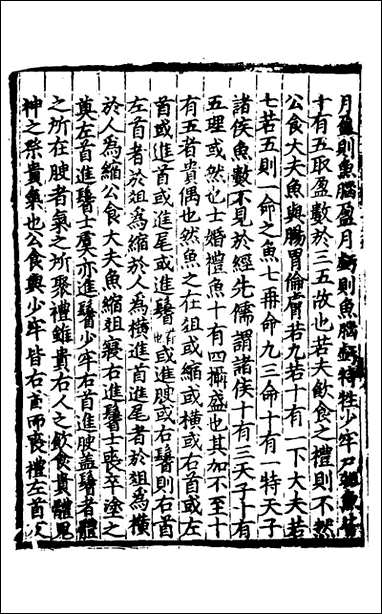 月盈則魚腦盈月虧則魚腦虧特牲少牢
十有五取盈數於三五故也若夫飲食之禮則不然
公食大夫魚與腸胃倫膚若九若十有一下大夫若
七若五則一命之魚七再命九三命十有一特天子
諸侯魚數不見於經先儒謂諸侯十有三天子十有
五理或然也士婚禮魚十有四攝盛也其加不至十
有五者貴偶也然魚之在俎或縮或橫或右首或左
首或進首或進尾或進鬐或進腴或右鬐則右首
左首者於俎為縮於人為橫進首進尾者於俎為橫
於人為縮公食大夫魚縮俎寢右進鬐士喪卒塗之
奠左首進鬐士虞亦進鬐少牢右首進腴蓋鬐者體
之所在腴者氣之所聚禮雖貴右人之飲食貴體鬼
神之祭貴氣也公食與少牢皆右首而喪禮左首